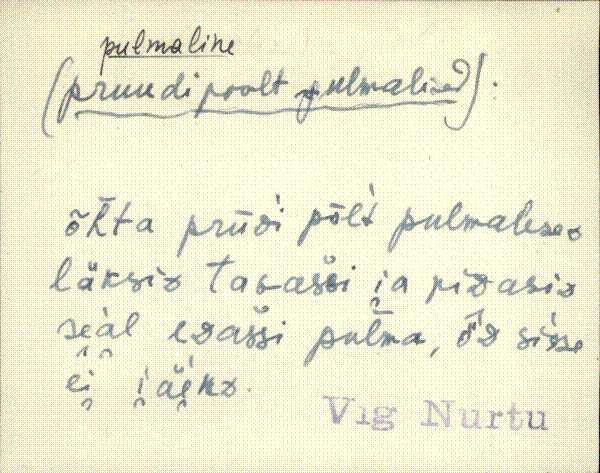 pulmaline
(pruudi poolt pulmalised).
õh̄ta prūᴅi pōlt pulmaleseᴅ
läksiᴅ tagašši i̯a piᴅasiᴅ
se̯a̯l eᴅašši pulma, ȫᴅ sisse
ei̯ i̯äe̯nᴅ.
Vig Nurtu